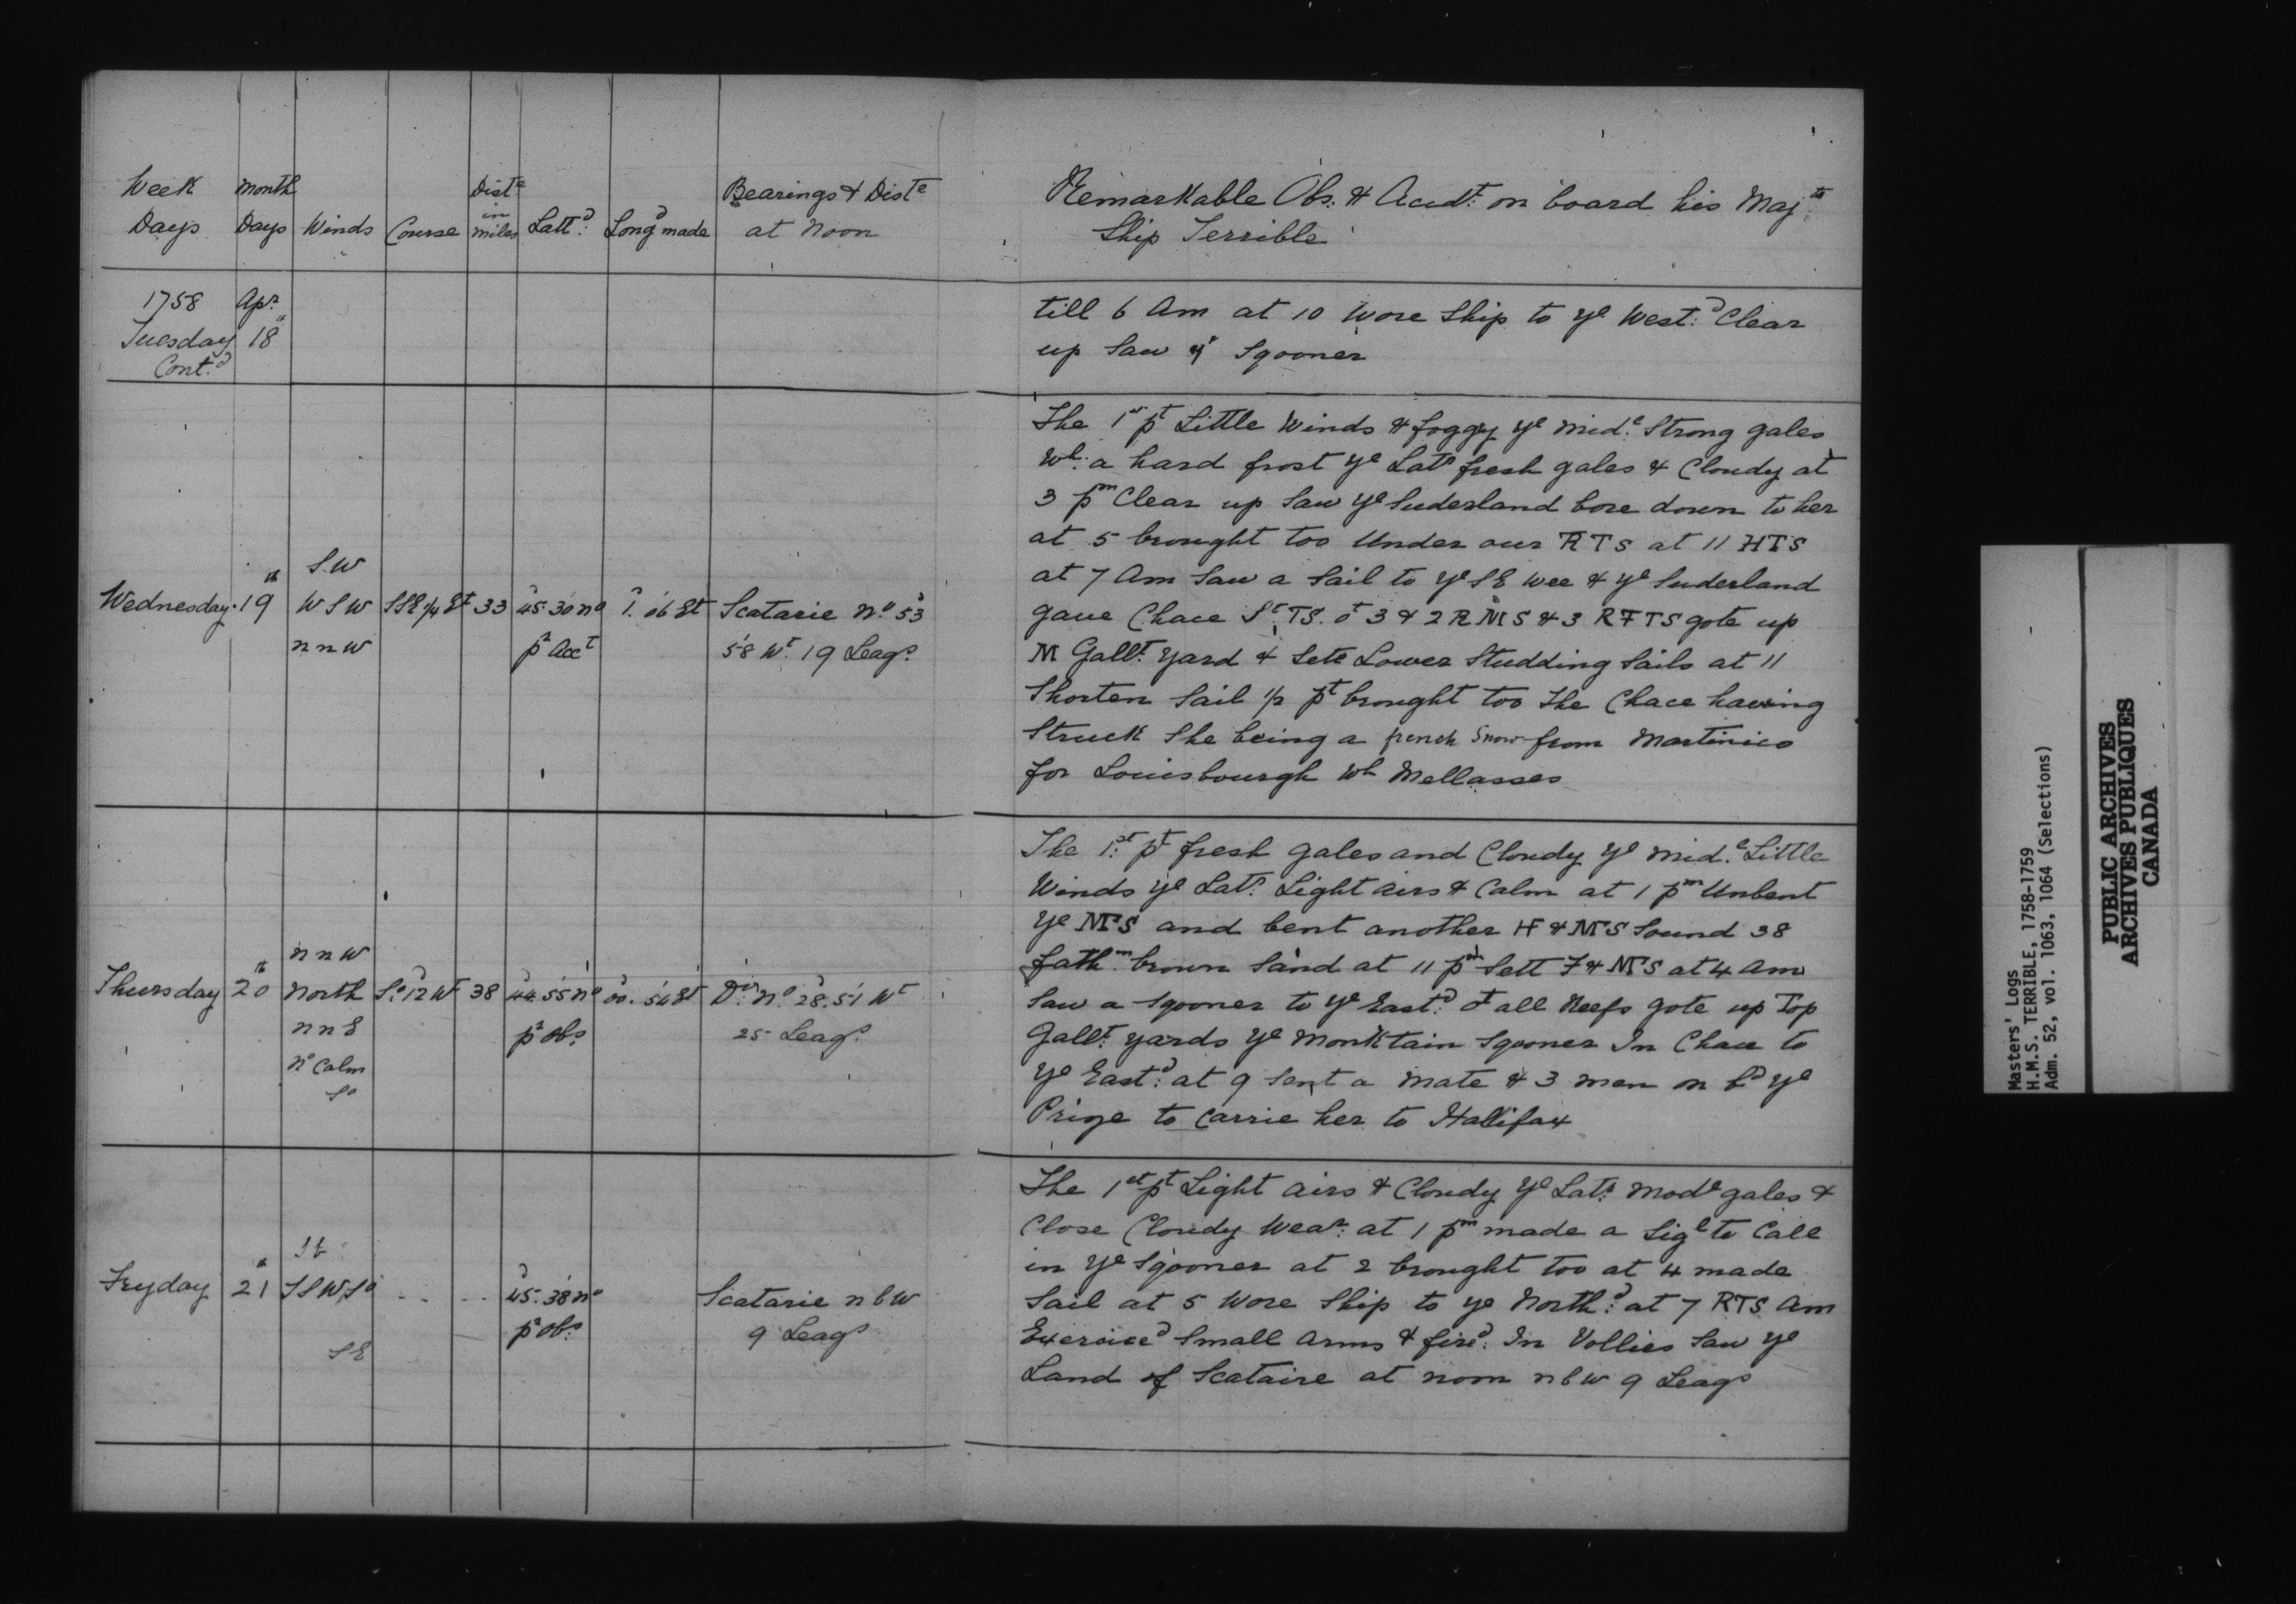 Week Days | Month Days | Winds | Course | Dist.e in miles | Latt.d | Long.d made | Bearings & Dist.e at Noon
Remarkable Obs: & Accd.t on board his Maj.ts
Ship Terrible
1758 Apr.
Tuesday 18th
Cont.d
till 6 Am at 10 wore Ship to ye West.d Clear
up Saw ye Sgooner
Wednesday 19th | S.W WSW nnW | SSE 1/4 Et | 33 | 45.30 no pr Acct | 1.06 Et | Scatarie No. 53 58 Wt. 19 Leags.
The 1st pt Little Winds & foggy ye mid.e Strong gales
Wh: a hard frost ye Latr fresh gales & Cloudy at
3 pm Clear up Saw ye Suderland bore down to her
at 5 brought too Under our RTS at 11 HTS
at 7 Am Saw a Sail to ye SE wee & ye Suderland
gave Chace St TS. ot 3 & 2 RMS & 3 RFTS gote up
M Gallt. yard & Sett Lower Studding Sails at 11
Shorten Sail 1/2 pt brought too The Chace having
Struck She being a french Snow from Martinico
for Louisbourgh wh Mellasses
Thursday 20th | nnW North nnE no Calm So | So. 12 Wt | 38 | 44.55 no pr obs | 00.54 Et | Do. No. 28.51 Wt 25 Leags.
The 1st pt fresh gales and Cloudy ye mid.e Little
Winds ye Latr. Light airs & Calm at 1 pm Unbent
ye MTS and bent another H & MTS Sound 38
fathm. brown Sand at 11 pm Sett F & MTS at 4 Am
Saw a Sgooner to ye East.d ot all Reefs gote up Top
Gallt. yards ye Monktain Sgooner In Chace to
ye East.d at 9 Sent a Mate & 3 men on bd ye
Prize to Carrie her to Hallifax
Fryday 21st | SSW So SE | - - | - - | 45.38 no pr obs. | Scatarie nbW 9 Leags
The 1st pt Light airs & Cloudy ye Latr. Mode gales &
Close Cloudy Wear. at 1 pm made a Sigl to Call
in ye Sgooner at 2 brought too at 4 made
Sail at 5 Wore Ship to ye North.d at 7 RTS Am
Exerciced Small Arms & fired. In Vollies Saw ye
Land of Scataire at noon nbw 9 Leags
Masters' Logs
H.M.S. TERRIBLE, 1758-1759
Adm. 52, vol. 1063, 1064 (Selections)
PUBLIC ARCHIVES
ARCHIVES PUBLIQUES
CANADA